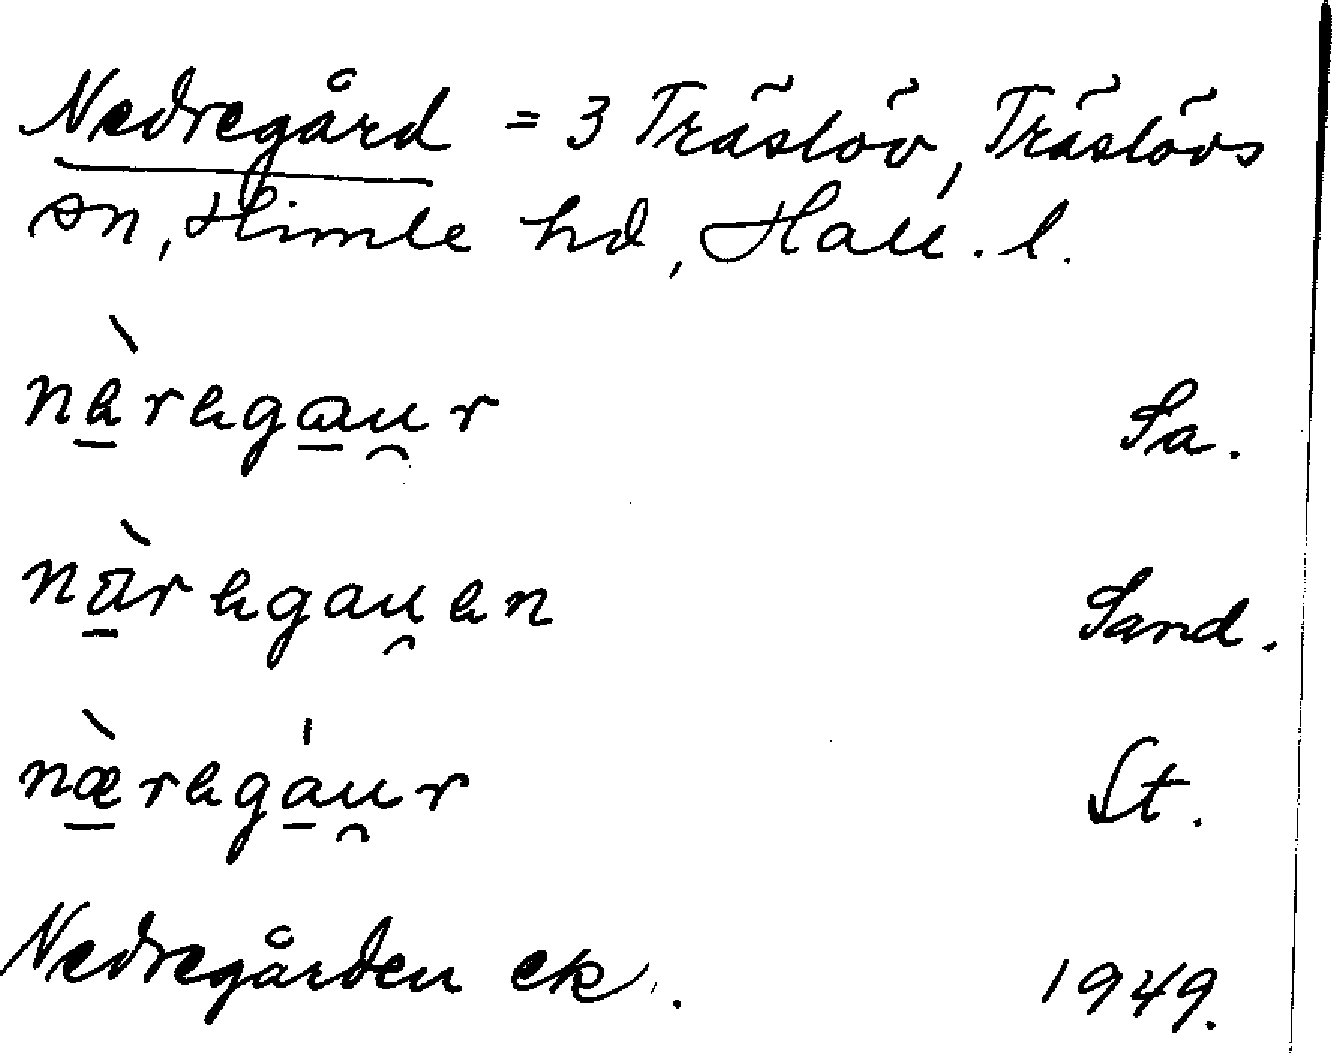 Nedregård = 3 Träslöv, Träslövs
sn, Himle hd, Hall. l.
nè̱rega̱u̯r Sa.
nä̱̀regau̯en Sand.
næ̱̀regá̱u̯r St.
Nedregården ek. 1949.